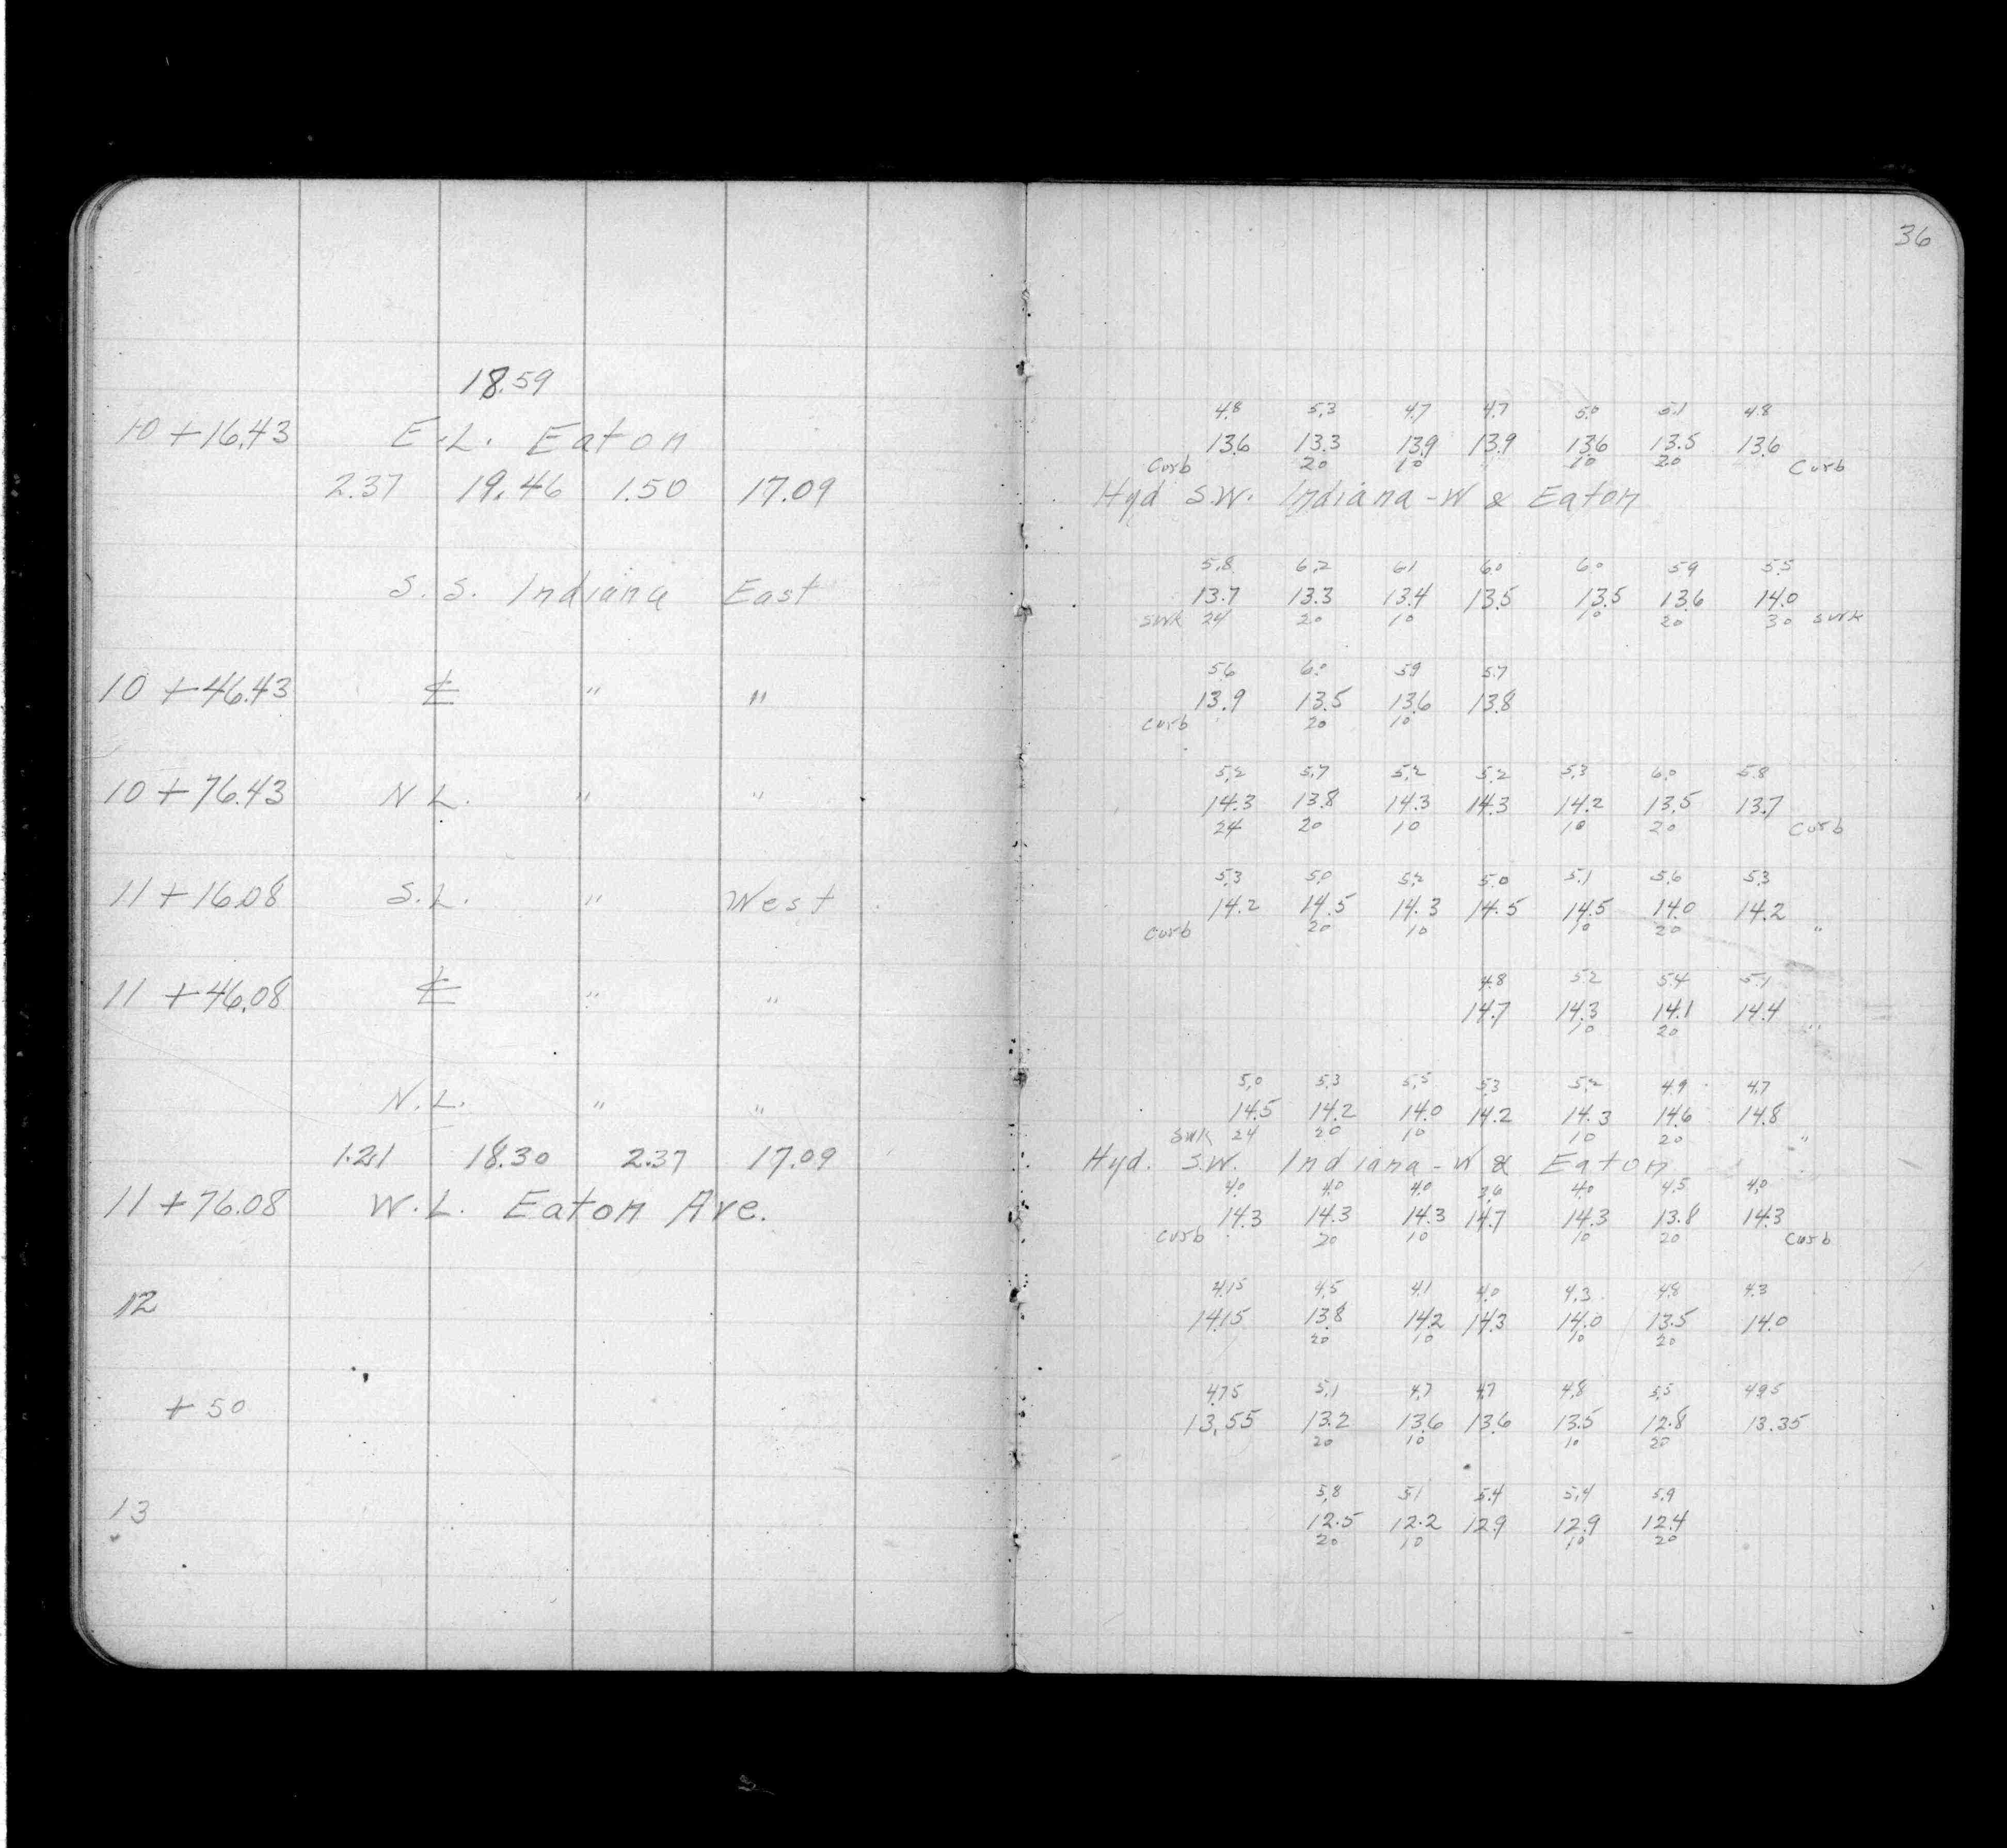 36
18.59
4.8 5.3 4.7 4.7 5.0 5.1 4.8
10 + 16.43 E.L. Eaton 13.6 13.3 13.9 13.9 13.6 13.5 13.6
Curb 20 10 10 20 Curb
2.37 19.46 1.50 17.09 Hyd S.W. Indiana - W & Eaton
5.8 6.2 6.1 6.0 6.0 5.9 5.5
S.S. Indiana East 13.7 13.3 13.4 13.5 13.5 13.6 14.0
SWK 24 20 10 10 20 30 SWK
5.6 6.0 5.9 5.7
10 + 46.43 ℄ " " 13.9 13.5 13.6 13.8
Curb 20 10
5.2 5.7 5.2 5.2 5.3 6.0 5.8
10 + 76.43 N L. " " 14.3 13.8 14.3 14.3 14.2 13.5 13.7
24 20 10 10 20 Curb
5.3 5.0 5.2 5.0 5.1 5.6 5.3
11 + 16.08 S.L. " West 14.2 14.5 14.3 14.5 14.5 14.0 14.2
Curb 20 10 10 20 "
4.8 5.2 5.4 5.1
11 + 46.08 ℄ " " 14.7 14.3 14.1 14.4
10 20 "
5.0 5.3 5.5 5.3 5.2 4.9 4.7
N.L. " " 14.5 14.2 14.0 14.2 14.3 14.6 14.8
SWK 24 20 10 10 20 "
1.21 18.30 2.37 17.09 Hyd. S.W. Indiana - W & Eaton
4.0 4.0 4.0 3.6 4.0 4.5 4.0
11 + 76.08 W.L. Eaton Ave. 14.3 14.3 14.3 14.7 14.3 13.8 14.3
Curb 20 10 10 20 Curb
4.15 4.5 4.1 4.0 4.3 4.8 4.3
12 14.15 13.8 14.2 14.3 14.0 13.5 14.0
20 10 10 20
4.75 5.1 4.7 4.7 4.8 5.5 4.95
+ 50 13.55 13.2 13.6 13.6 13.5 12.8 13.35
20 10 10 20
5.8 5.1 5.4 5.4 5.9
13 12.5 12.2 12.9 12.9 12.4
20 10 10 20